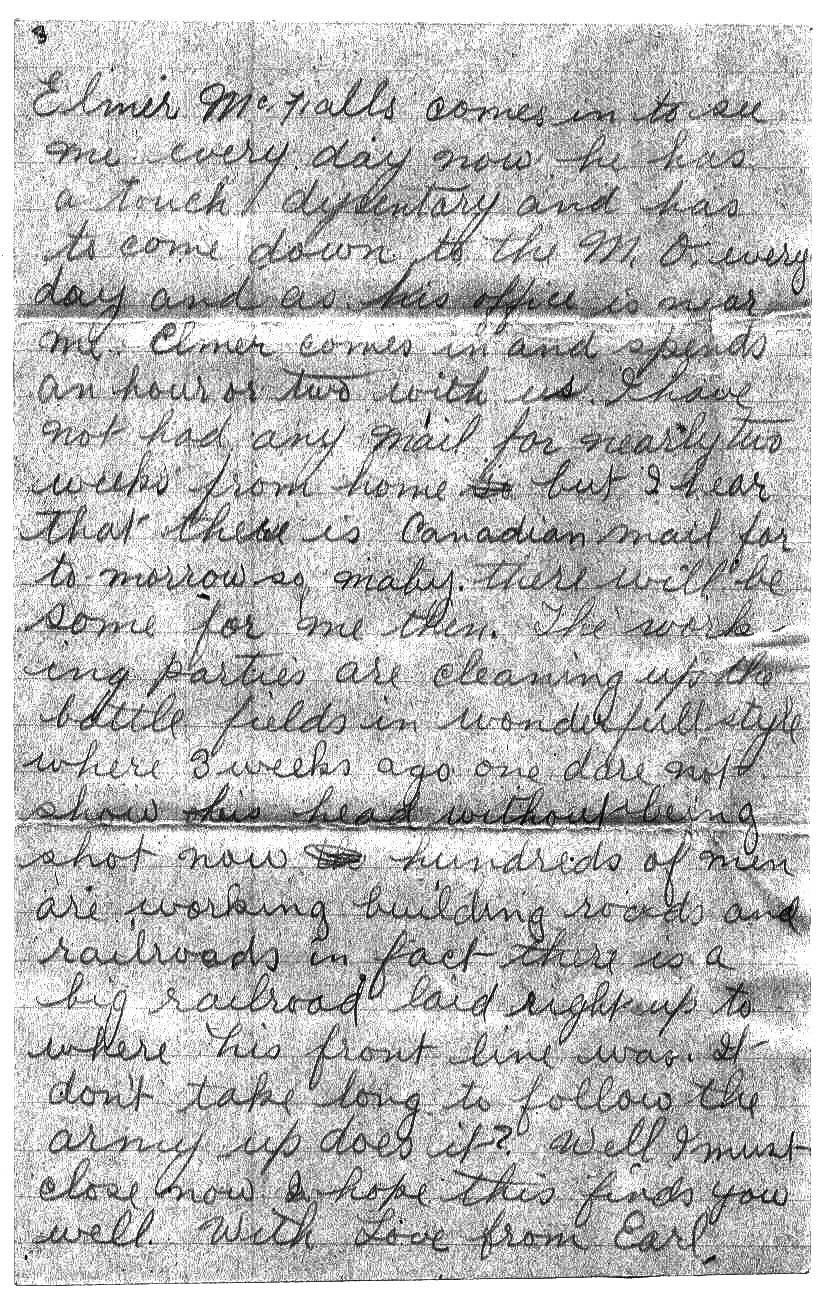 3
Elmer McFalls comes in to see
me every day now he has
a touch dysentary and has
to come down to the M. O. every
day and as his office is near
me. Elmer comes in and spends
an hour or two with us. I have
not had any mail for nearly two
weeks from home but I hear
that there is Canadian mail for
to-morrow so maby there will be
some for me then. The work-
ing parties are cleaning up the
battle fields in wonderfull style
where 3 weeks ago one dare not
show his head without being
shot now hundreds of men
are working building roads and
railroads in fact there is a
big railroad laid right up to
where his front line was. It
don't take long to follow the
army up does it? Well I must
close now I hope this finds you
well. With Love from Earl.